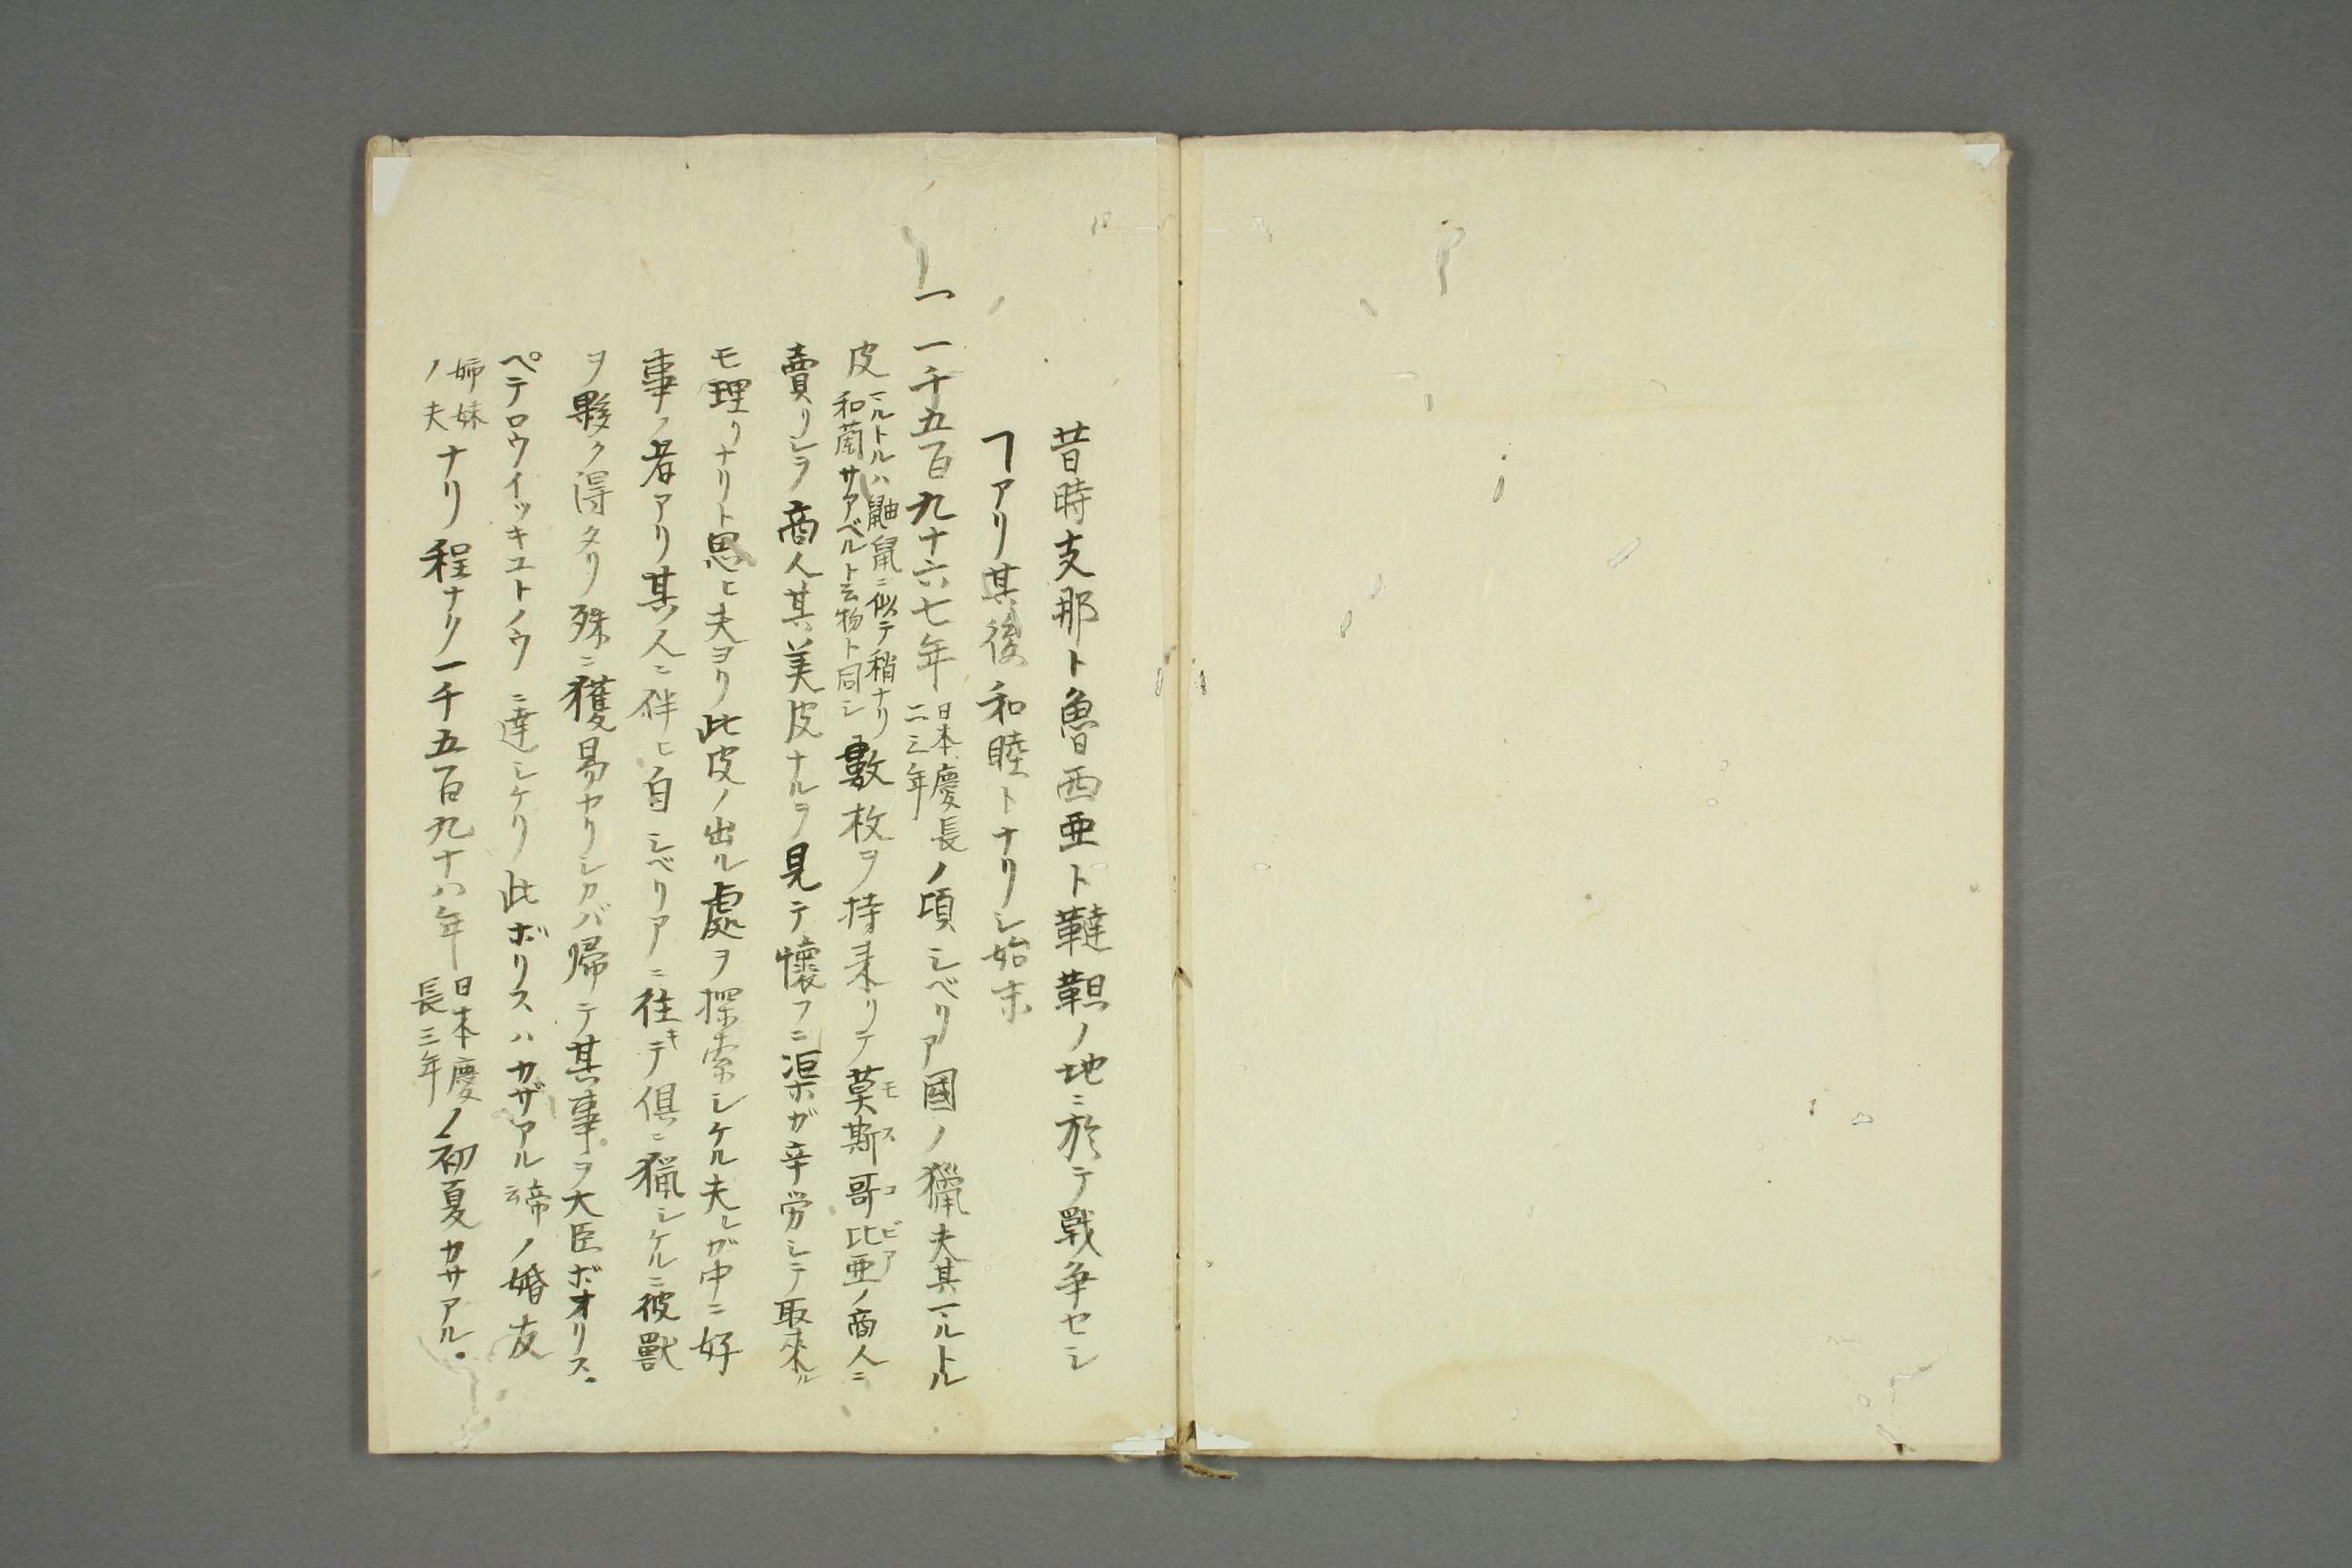 昔時支那ト魯西亜ト韃靼ノ地ニ於テ戰争セシ
ヿアリ其後和睦トナリシ始末
一 一千五百九十六七年日本慶長二三年ノ頃シベリア國ノ獵夫其マルトル
皮マルトルハ鼬鼠ニ似テ稍ナリ和蘭サアベルト云物ト同シ數枚ヲ持来リテ莫斯哥比亜ノ商人ニ
賣リシヲ商人其美皮ナルヲ見テ懐フニ渠ガ辛労シテ取來ル
モ理リナリト思ヒ夫ヨリ此皮ノ出ル處ヲ探索シケル夫レガ中ニ好
事ノ者アリ某人ニ伴ヒ自シベリアニ往キテ倶ニ猟シケルニ彼獣
ヲ夥ク得タリ殊ニ獲易ヤリシカバ帰テ其事ヲ大臣ボオリス・
ペテロウイッキユトノウニ達シケリ此ボリスハカザアル云帝ノ婚友
姉妹ノ夫ナリ程ナク一千五百九十八年日本慶長三年ノ初夏カサアル・
モスコビア
18